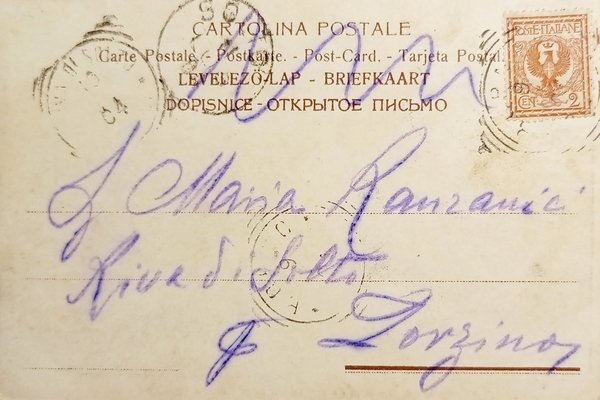 CARTOLINA POSTALE
Carte Postale. - Postkarte. - Post-Card. - Tarjeta Postal.
LEVELEZÖ-LAP - BRIEFKAART
DOPISNICE - ОТКРЫТОЕ ПИСЬМО
POSTE ITALIANE
CEN. 2
04
Maria Ranzanici
Riva di Solto
Zorzino